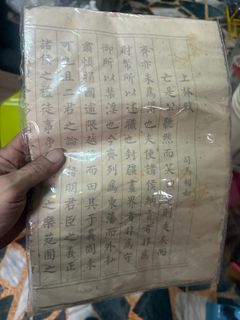 上林賦
司馬相如
亡是公听然而笑則失矣而
齊亦未為得也夫使諸侯納貢者非為
財幣所以述職也封疆畫界者非為守
御所以禁淫也今齊列為東藩而外私
肅慎捐國踰限越海而田其于義固未
可也且二君之論明君臣之義正
諸侯之禮徒事爭之樂苑囿之